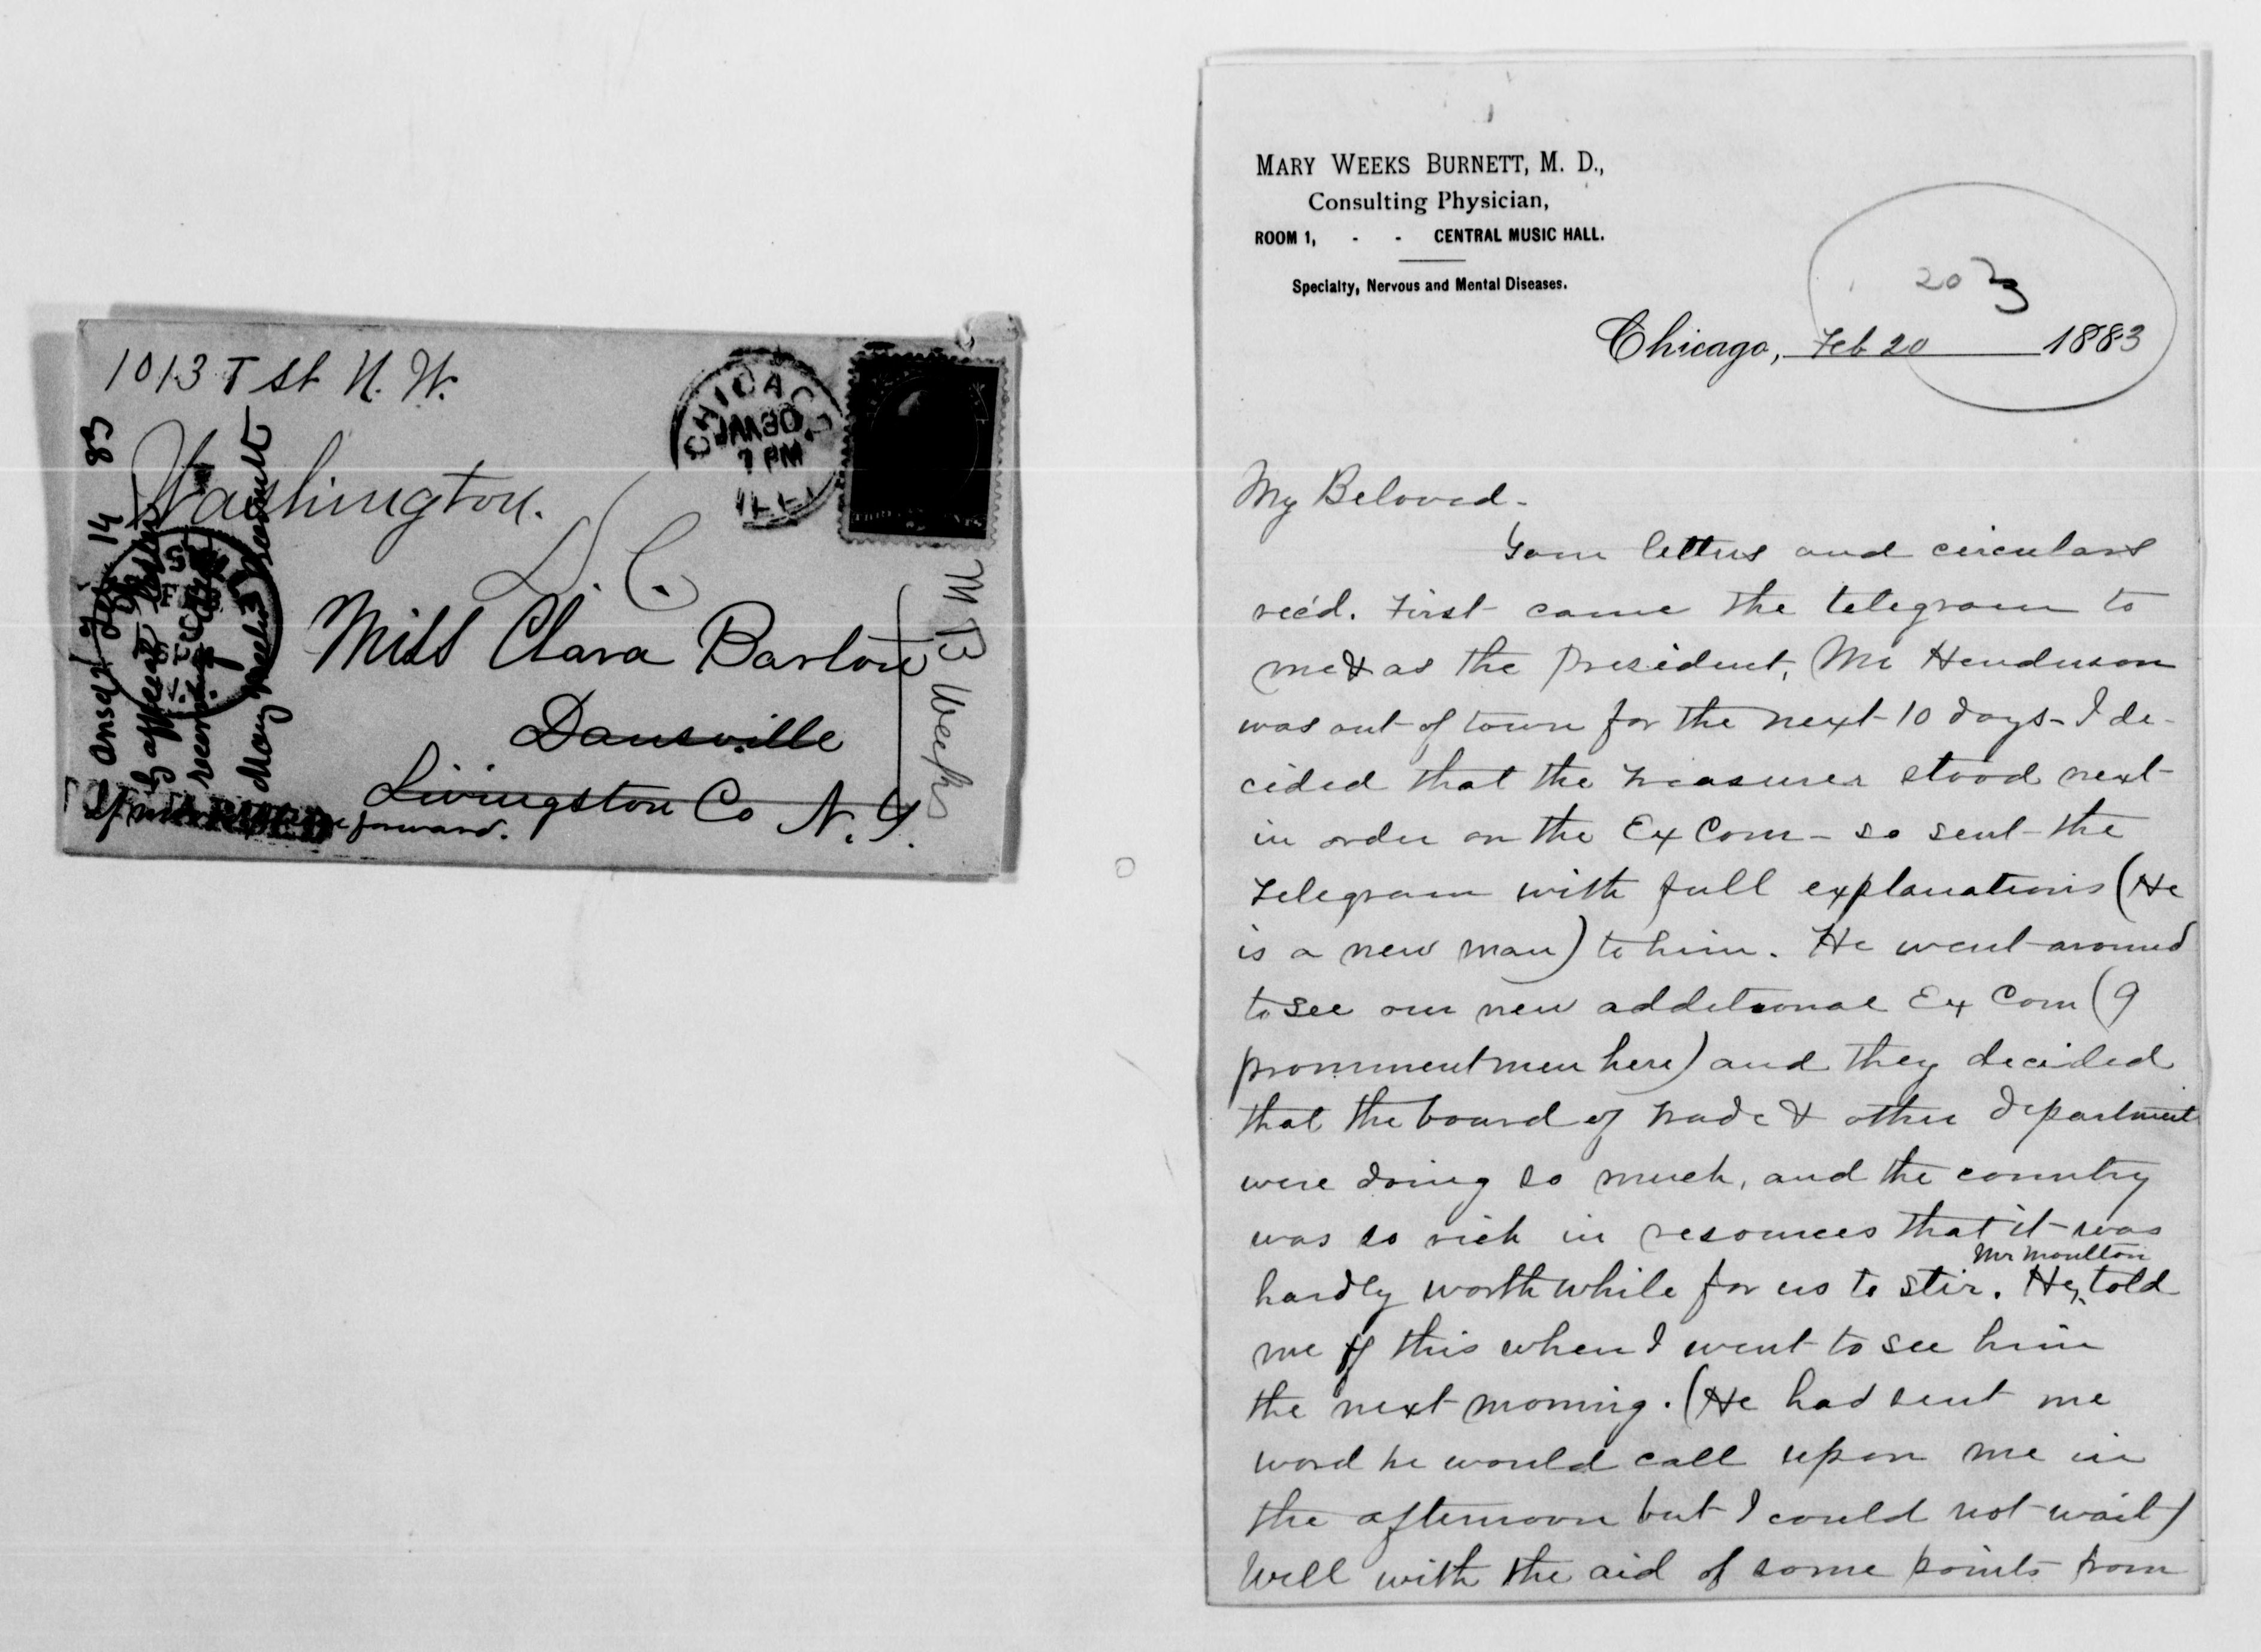 1013 T St N. W.
Washington.
D. C.
CHICAGO
JAN 30
7 PM
ILL
Miss Clara Barton
Dansville
Livingston Co N. Y.
forward.
M B Weeks
ansd Feb 14 83
Mary Weeks Burnett
MARY WEEKS BURNETT, M. D.,
Consulting Physician,
ROOM 1, - - CENTRAL MUSIC HALL.
Specialty, Nervous and Mental Diseases.
20 3
Chicago, Feb 20 1883
My Beloved-
Your letters and circulars
rec'd. First came the telegram to
me & as the President, Mr Henderson
was out of town for the next 10 days- I de-
cided that the Treasurer stood next
in order on the Ex Com- so sent the
Telegram with full explanations (He
is a new man) to him. He went around
to see our new additional Ex Com (9
prominent men here) and they decided
that the board of Trade & other department
were doing so much, and the country
was so rich in resources that it was
hardly worth while for us to stir. He, Mr Moulton told
me of this when I went to see him
the next morning. (He had sent me
word he would call upon me in
the afternoon but I could not wait)
Well with the aid of some points from